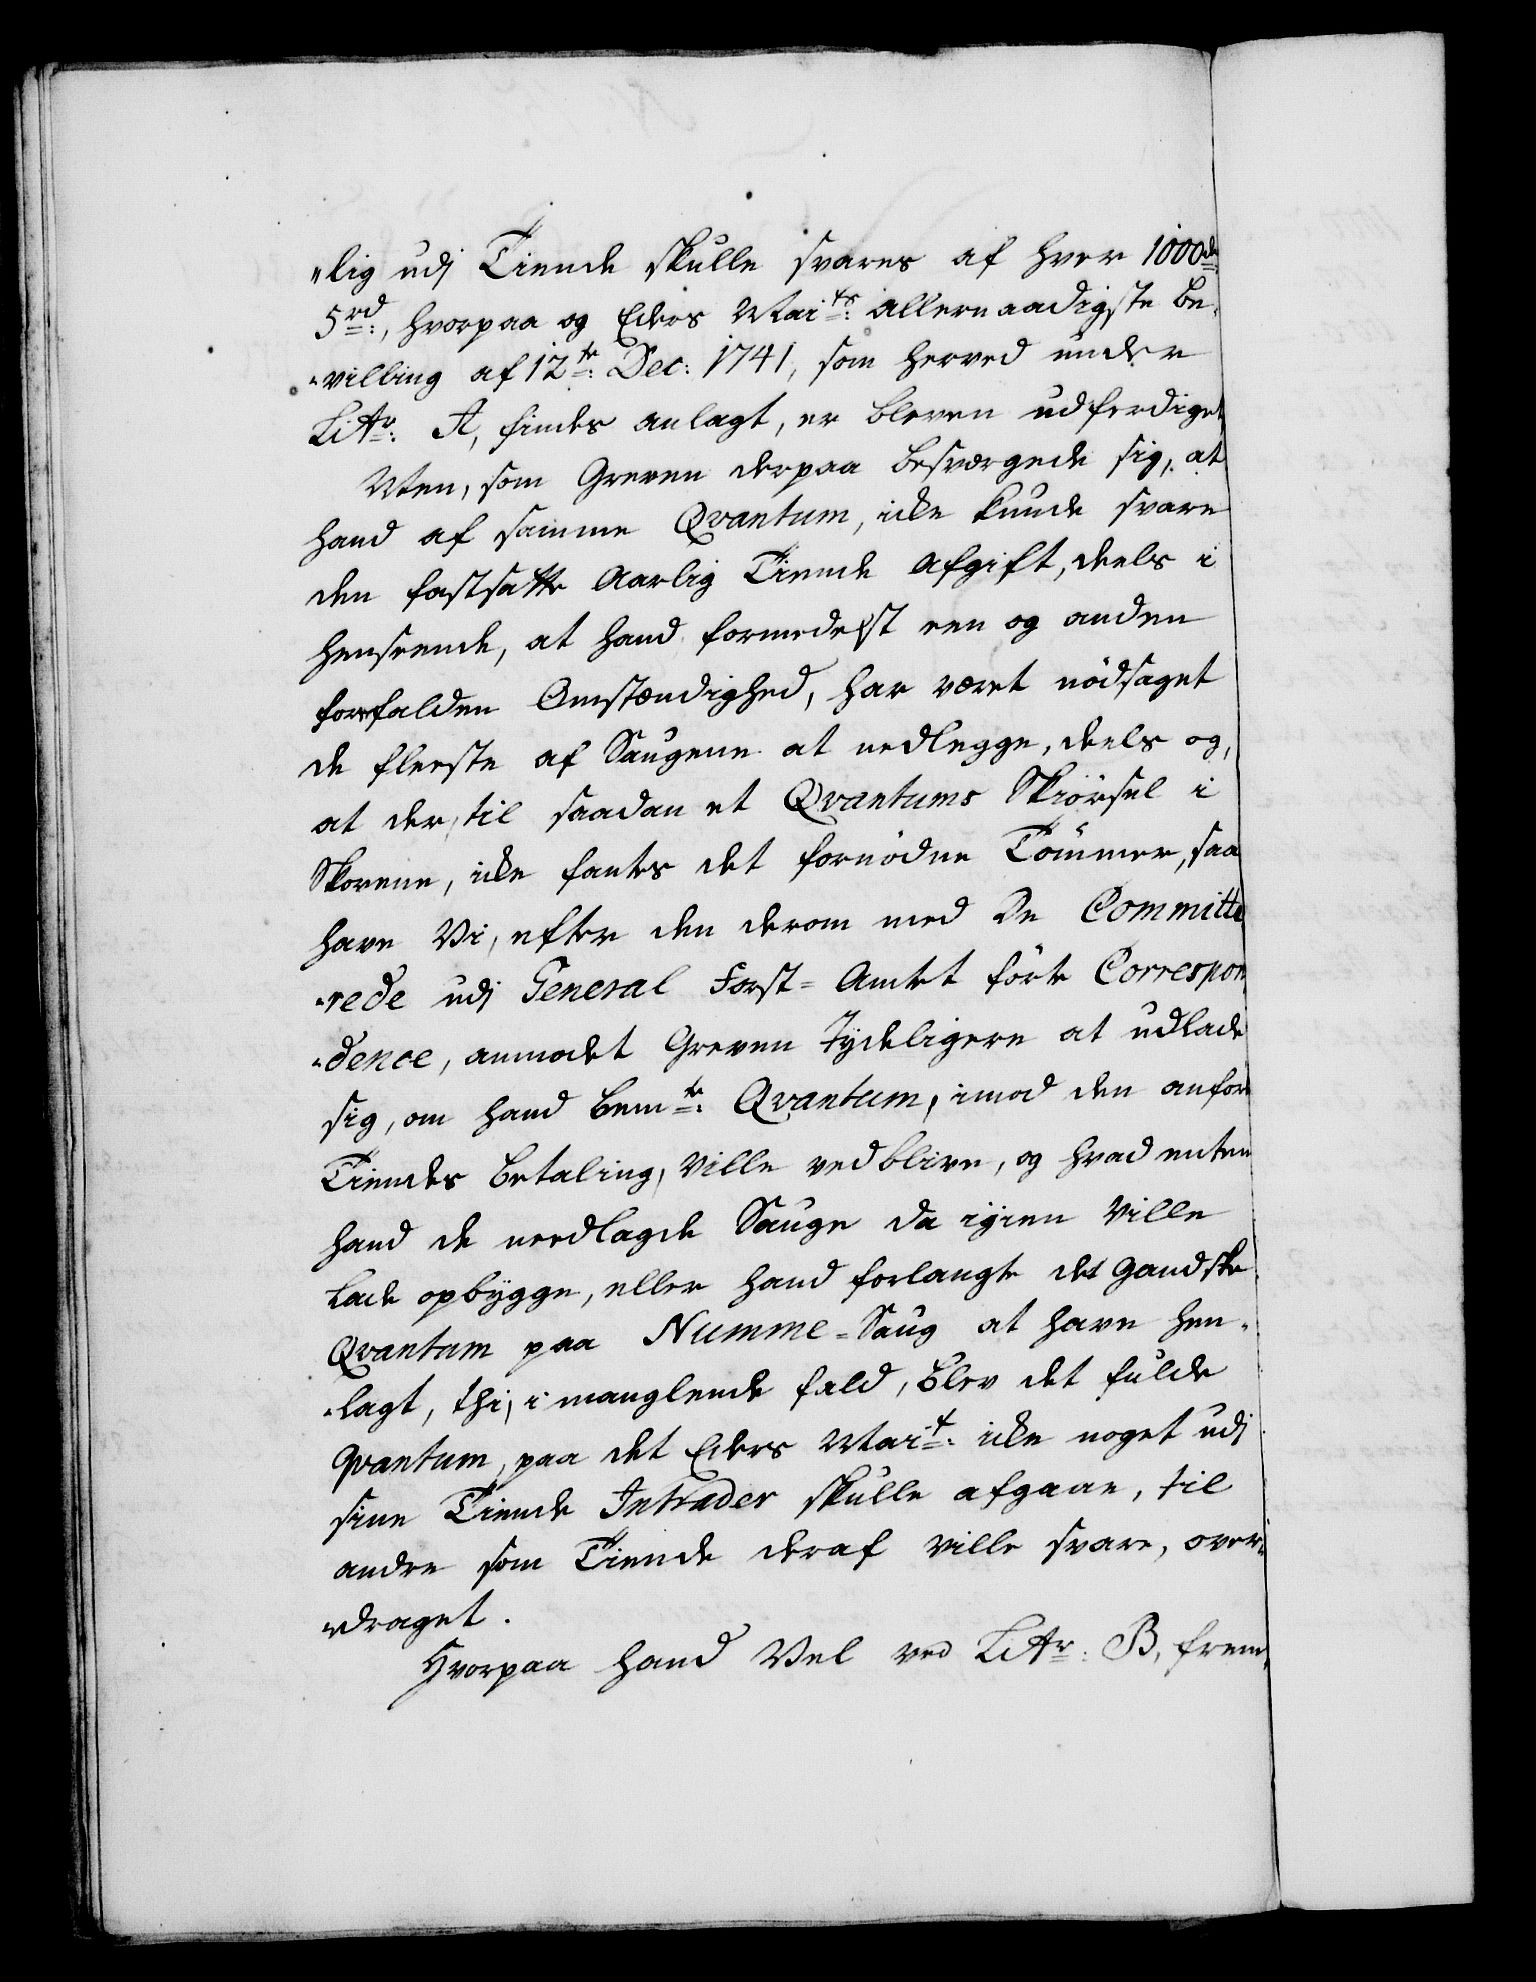 „lig udj Tiende skulle svares af hver 1000de
5 rd:, hvorpaa og Eders Maits: allernaadigste Be„
„villing af 12te: Dec: 1741, som herved under
Littr: A, findes anlagt, er bleven udferdiget,
Men, som Greven derpaa besværgede sig, at
hand af samme Qvantum, icke kunde svare
den fastsatte Aarlig Tiende Afgift, deels i
henseende, at hand formedelst een og anden
forrefalden Omstændighed, har været nödsaget
de fleeste af Saugene at nedlegge, deels og,
at der, til saadan et Qvantums Skiörsel i
Skovene, icke fantes det fornödne Tömmer, saa
have Vi, efter den derom med De Committe„
„rede udj General Forst=Amtet förte Correspon„
„dence, anmodet Greven Tydeligere at udlade
sig, om hand bemte: Qvantum, imod den anförte
Tiendes betaling, Ville vedblive, og hvad enten
hand de needlagde Sauge da igien Ville
lade opbygge, eller hand forlangte det gandske
Qvantum paa Numme=Saug at have hen„
„lagt, thi, i manglende fald, blev det fulde
Qvantum, paa det Eders Mait: icke noget udj
sine Tiende Intrader skulle afgaae, til
andre som Tiende deraf ville svare, over„
„draget.
Hvorpaa hand Vel ved Littr: B, frem„